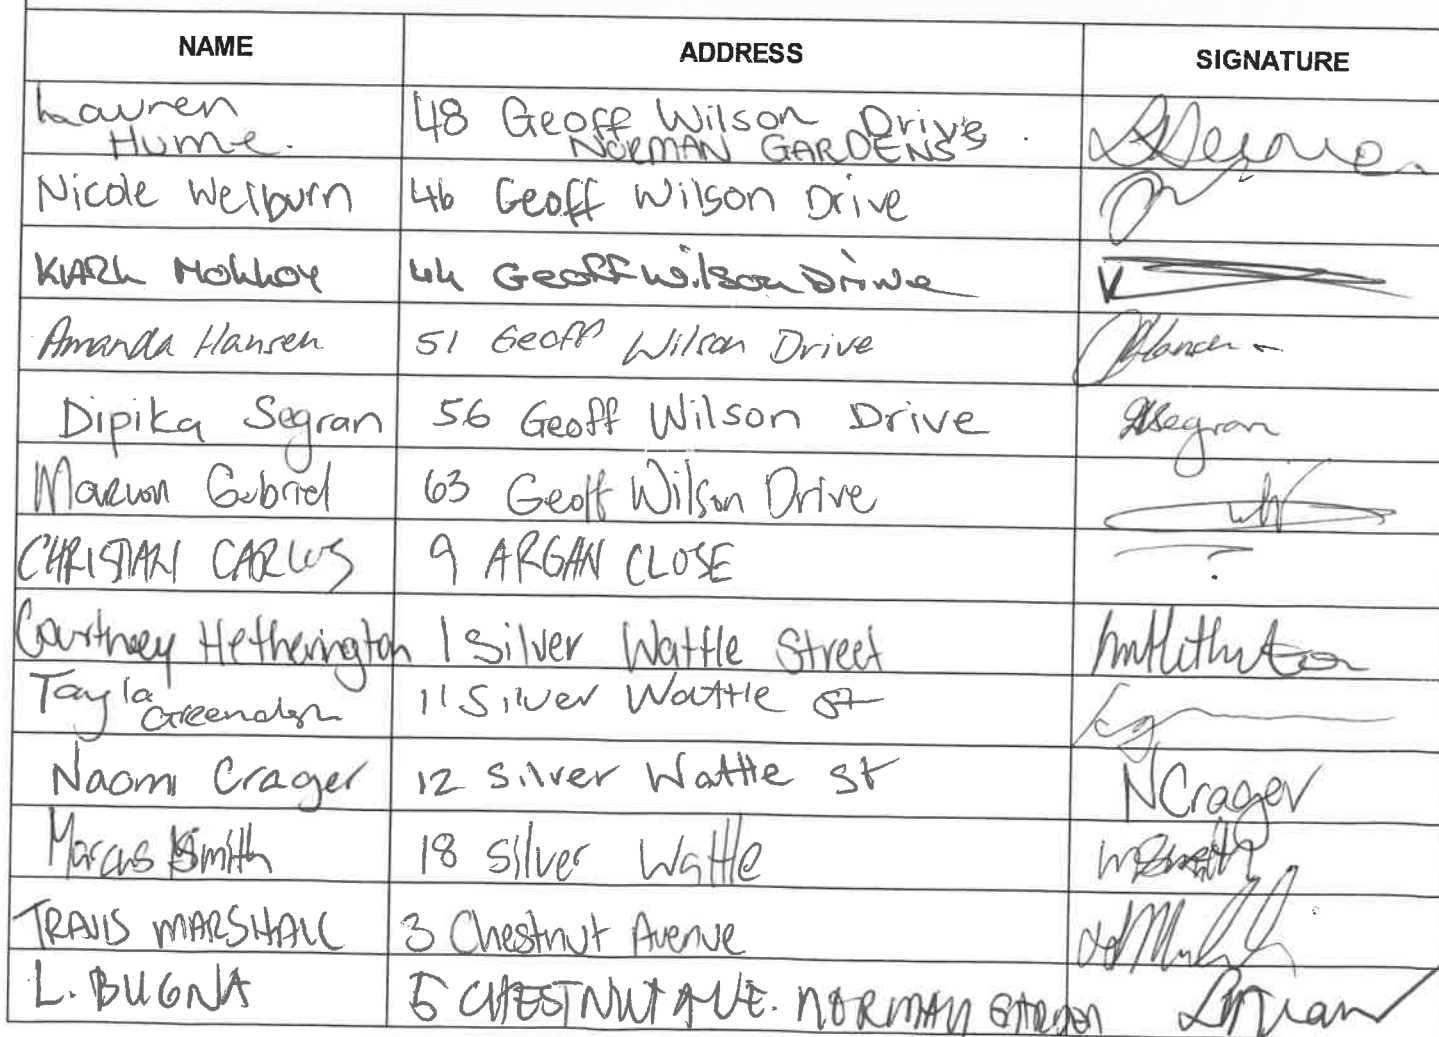 NAME ADDRESS SIGNATURE
Lauren Hume. 48 Geoff Wilson Drive NORMAN GARDENS
Nicole Welburn 46 Geoff Wilson Drive
44 Geoff Wilson Drive
Amanda Hansen 51 Geoff Wilson Drive
Dipika Segran 56 Geoff Wilson Drive Segran
Gabriel 63 Geoff Wilson Drive
CHRISTIAN CARLOS 9 ARGAN CLOSE
Courtney Hetherington 1 Silver Wattle Street
Tayla 11 Silver Wattle St
Naomi Crager 12 Silver Wattle St N Crager
Marcus Smith 18 Silver Wattle
TRAVIS MARSHALL 3 Chestnut Avenue
L. BUGNA 5 CHESTNUT AVE. NORMAN GARDEN